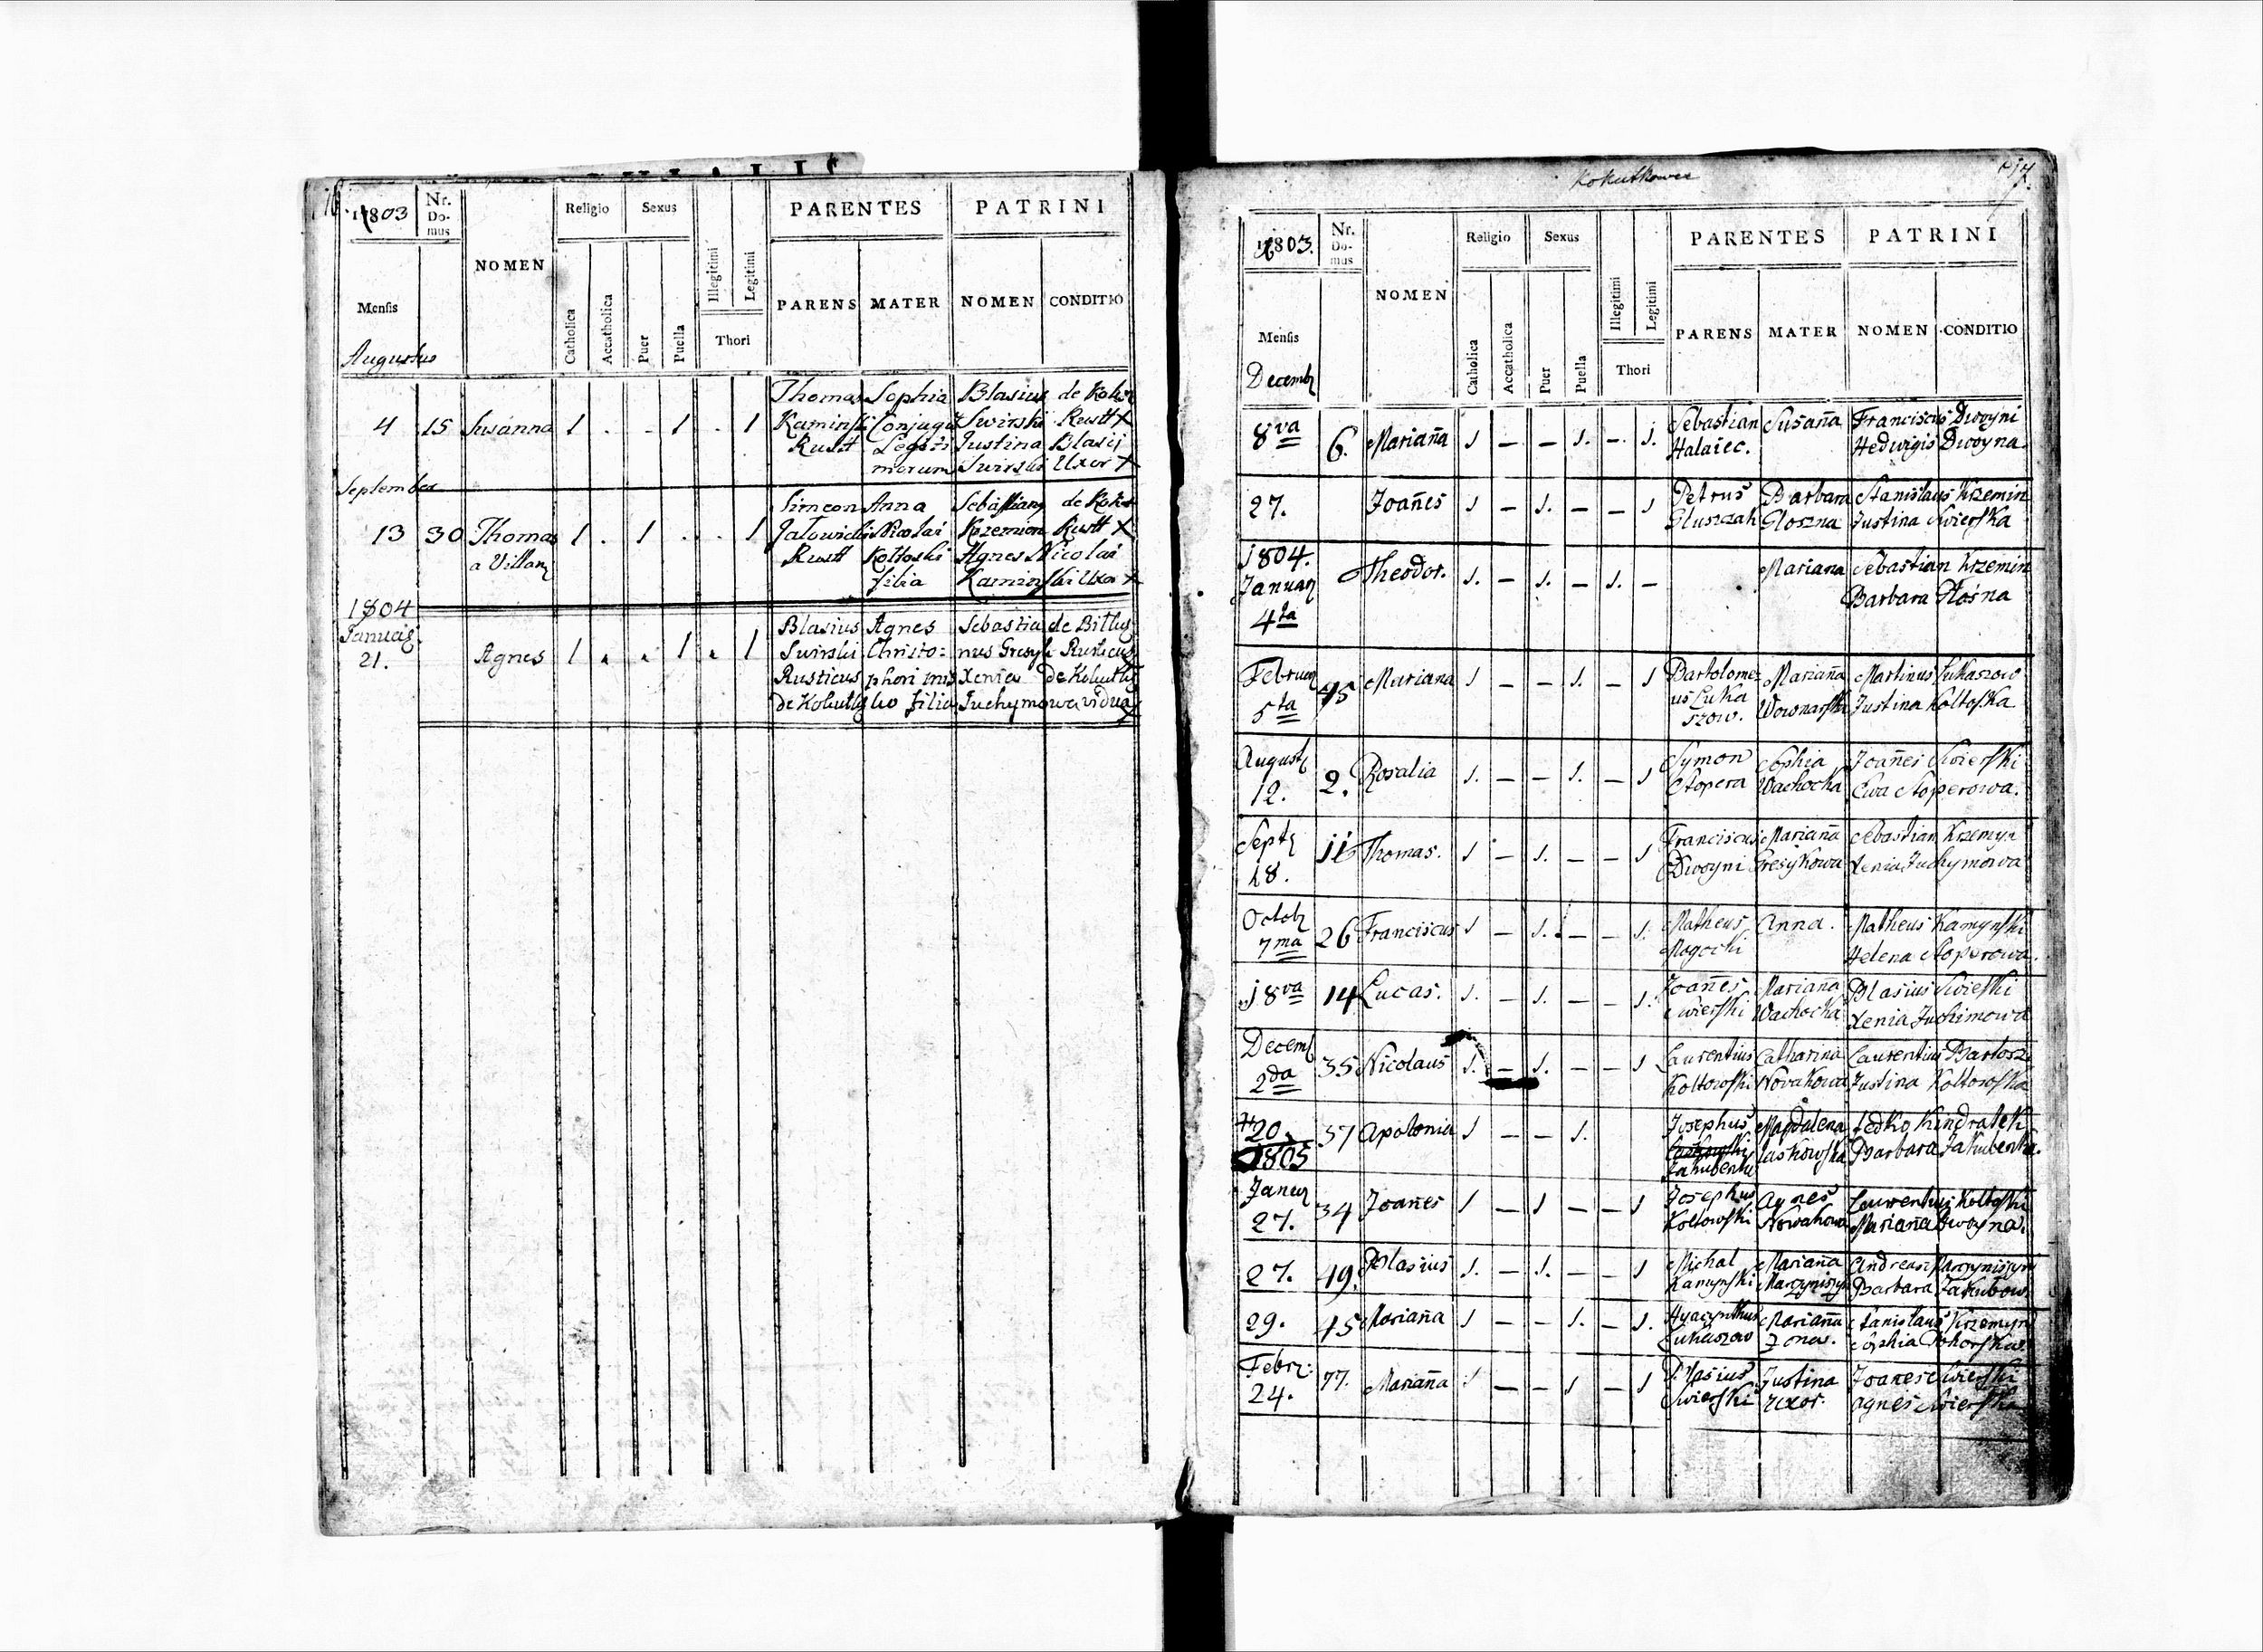 16
1803 Nr. Domus NOMEN Religio Sexus PARENTES PATRINI
Mensis Catholica Accatholica Puer Puella Illegitimi Legitimi Thori PARENS MATER NOMEN CONDITIO
Augustus
Thomas Sophia Blasius de Kokut
4 15 Susanna 1 . . 1 . 1 Kaminski Conjuges Swirski Rustt x
Rustt Legiti Justina Blasij
morum Swirski Uxor x
September
Simeon Anna Sebastiany de Kokut
13 30 Thomas 1 . 1 . . 1 Jalowicki Nicolai Krzemien Rustt x
a Villan Rustt Koltoski Agnes Nicolai
filia Kaminski Uxor x
1804
Januarij Blasius Agnes Sebastia de Bitly
21. Agnes 1 . . 1 . 1 Swirski Christo= nus Gresyk Rusticus
Rusticus phori Xenia de Kokutky
de Kokutky ko filia Juchymowa vidua
Kokutkowce
17.
1803. Nr. Domus NOMEN Religio Sexus PARENTES PATRINI
Mensis Catholica Accatholica Puer Puella Illegitimi Legitimi Thori PARENS MATER NOMEN CONDITIO
Decemb
8va 6. Mariaña 1 – – 1. –. 1. Sebastian Susaña Franciscus Dwoyni
Halaiec. Hedwigis Dwoyna
27. Joañes 1 – 1. – – 1 Petrus Barbara Stanislaus Krzemin
Gluszczak Gloszna Justina Swierska
1804.
Januar Theodor. 1. – 1. – 1. – Mariana Sebastian Krzemin
4ta Barbara Glośna
Februar 45 Mariana 1 – – 1. – 1 Bartolome Mariaña Martinus Lukaszow
5ta us Luka Wownarska Justina Koltoska
szow.
August 2. Rosalia 1. – – 1. – 1 Symon Sophia Joañes Swierski
12. Stopera Wachocka Ewa Stoperowa.
Sept 11 Thomas. 1 – 1. – – 1 Franciscus Mariaña Sebastian Krzemyn
18. Dwoyni Gresykowa Xenia Juchymowa
Octob 26 Franciscus 1 – 1. – – 1. Matheus Anna. Matheus Kamynski
7ma Rogocki Helena Stoperowa.
18va 14 Lucas. 1. – 1. – – 1. Joañes Mariaña Blasius Swieski
Swierski Wachocka Xenia Juchimowa
Decem 35 Nicolaus 1. – 1. – – 1 Laurentius Catharina Laurentius Bartosz
2da Koltowski Novakowa Justina Koltowska
20. 37 Apolonia 1 – – 1. Josephus Magdalena Fedko Kindratek
1805 Jakubenki Laskowska Barbara Jakubenka.
Januar 34 Joañes 1 – 1 – – 1 Josephus Agnes Laurentius Koltoski
27. Koltowski Nowakowa Mariaña Dwoyna.
27. 49. Blasius 1. – 1. – – 1 Michal Mariaña Andreas Marcyniszyn
Kamynski Marcyniszyn Barbara Jakubow.
29. 45 Mariaña 1 – – 1. – 1. Hyacynthus Mariaña Stanislaus Krzemyn
Lukaszow Żona. Sophia
Febr: 77. Mariaña 1 – – 1 – 1 Blasius Justina Joanes Swierski
24. Swierski uxor. Agnes Swierska